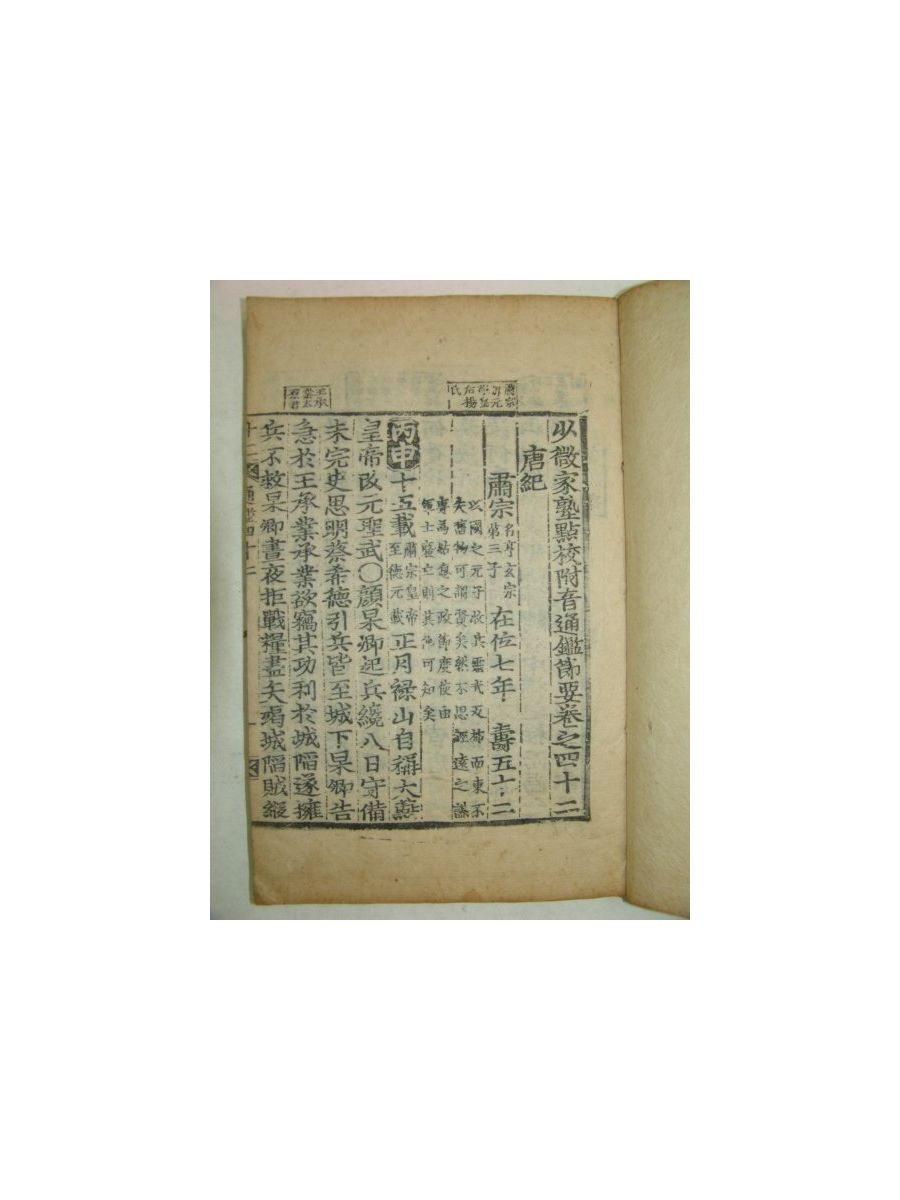 少微家塾點校附音通鑑節要卷之四十二
唐紀
肅宗 名亨玄宗第三子 在位七年 壽五十二
以國之元子收兵靈武反旆而東不
失舊物可謂賢矣然不思經遠之謀
專為姑息之政節度使由
軍士廢立則其他可知矣
丙申 十五載 肅宗皇帝至德元載 正月祿山自稱大燕
皇帝改元聖武○顔杲卿起兵纔八日守備
未完史思明蔡希德引兵皆至城下杲卿告
急於王承業承業欲竊其功利於城陷遂擁
兵不救杲卿晝夜拒戰糧盡矢竭城陷賊縱
通鑑四十二
一
肅宗
后楊
氏
王承
業太
原尹